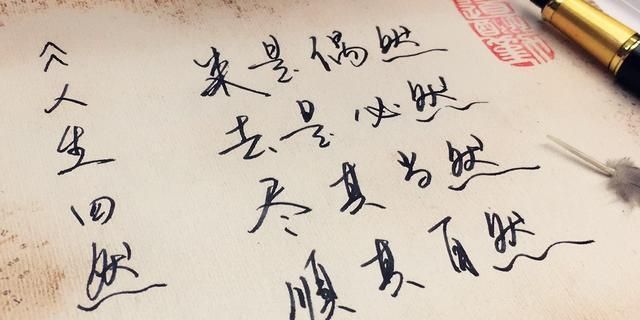 《人生四然
来是偶然
去是必然
尽其当然
順其自然